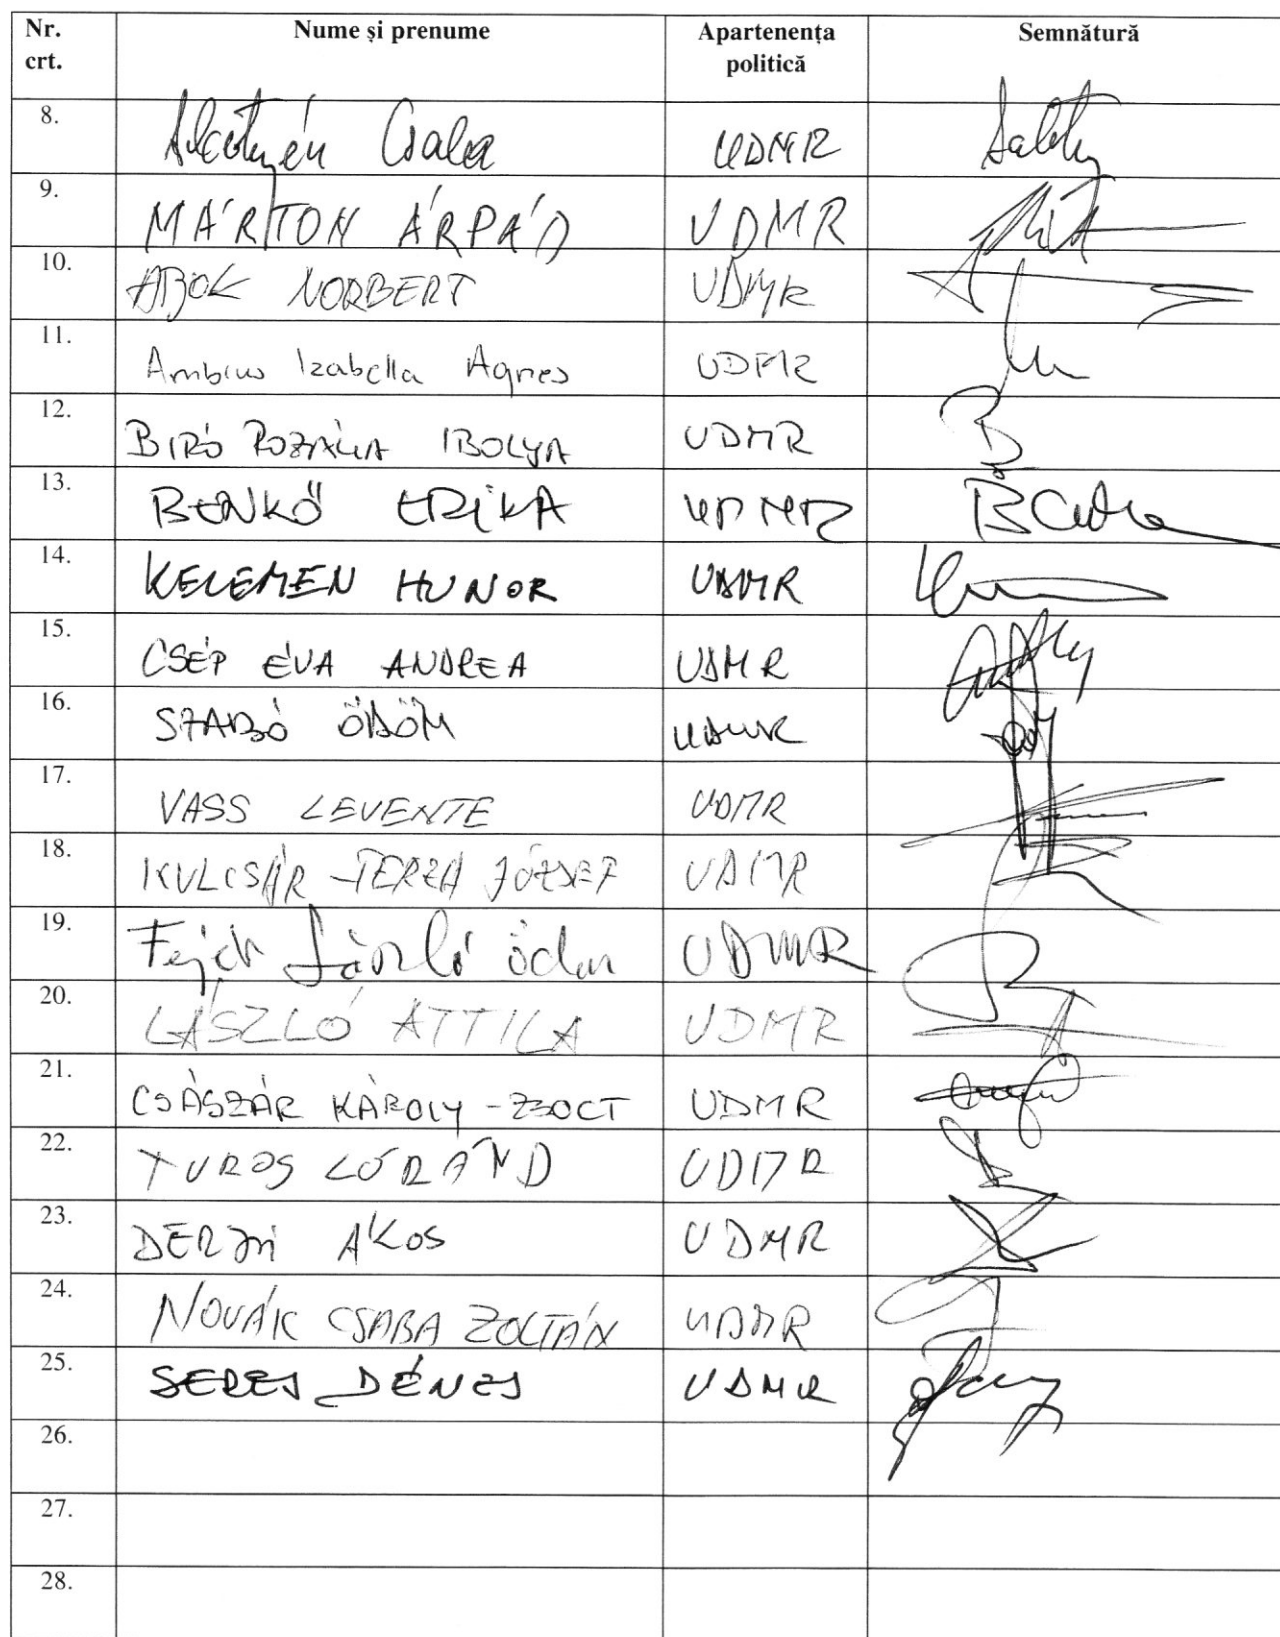 Nr. crt. Nume și prenume Apartenența politică Semnătură
8. Csaba UDMR
9. MÁRTON ÁRPÁD UDMR
10. APJOK NORBERT UDMR
11. Ambrus Izabella Agnes UDMR
12. BIRÓ ROZÁLIA IBOLYA UDMR
13. BENKŐ ERIKA UDMR
14. KELEMEN HUNOR UDMR
15. CSÉP ÉVA ANDREA UDMR
16. SZABÓ ÖDÖN UDMR
17. VASS LEVENTE UDMR
18. KULCSÁR-TERZA JÓZSEF UDMR
19. Fejér László Ödön UDMR
20. LÁSZLÓ ATTILA UDMR
21. CSÁSZÁR KÁROLY-ZSOLT UDMR
22. TUROS LÓRÁND UDMR
23. DERZSI ÁKOS UDMR
24. NOVÁK CSABA ZOLTÁN UDMR
25. SERES DÉNES UDMR
26.
27.
28.